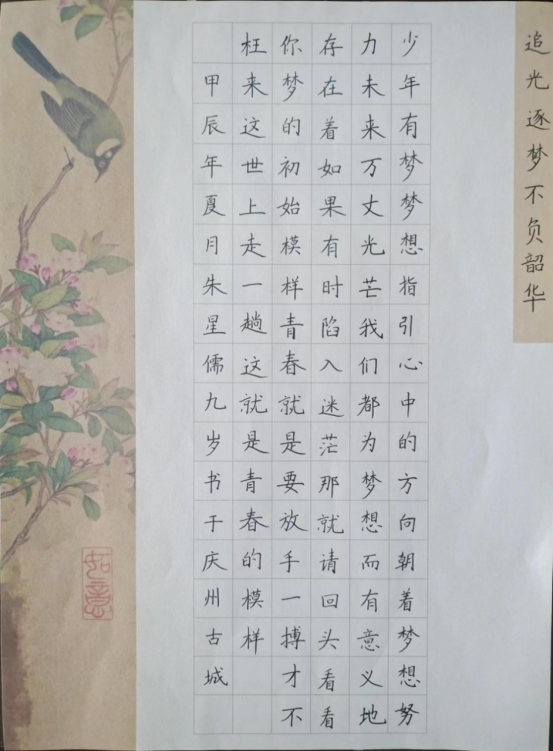 追光逐梦不负韶华
少年有梦梦想指引心中的方向朝着梦想努
力未来万丈光芒我们都为梦想而有意义地
存在着如果有时陷入迷茫那就请回头看看
你梦的初始模样青春就是要放手一搏才不
枉来这世上走一趟这就是青春的模样
甲辰年夏月朱星儒九岁书于庆州古城
如意